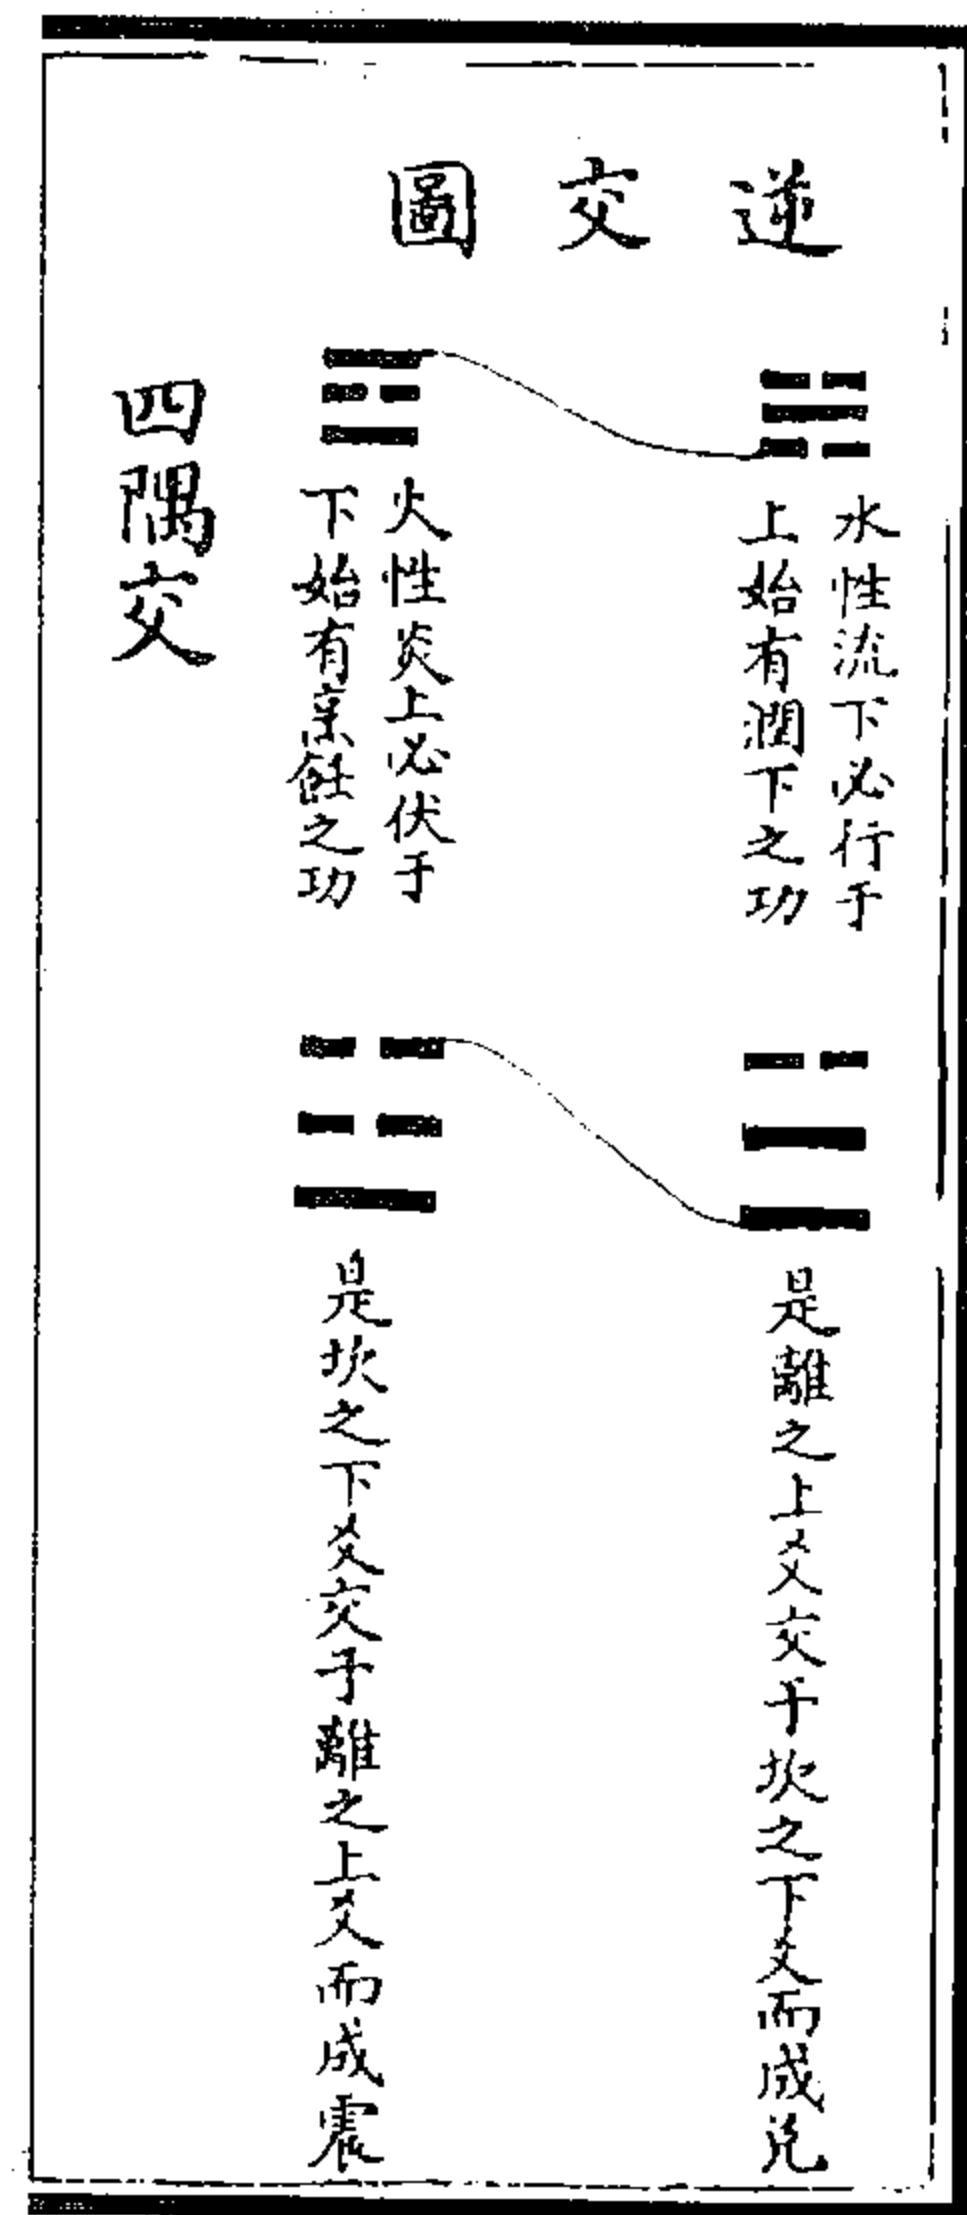 逆交圖
水性流下必行于
上始有潤下之功
是離之上爻交于坎之下爻而成兌
火性炎上必伏于
下始有烹飪之功
是坎之下爻交于離之上爻而成震
四隅交